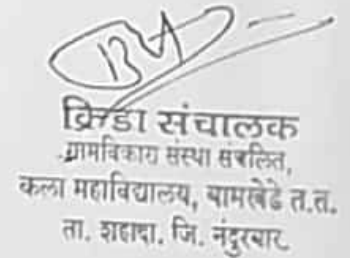 क्रिडा संचालक
ग्रामविकास संस्था संचलित,
कला महाविद्यालय, बामखेडे त.त.
ता. शहादा. जि. नंदुरबार